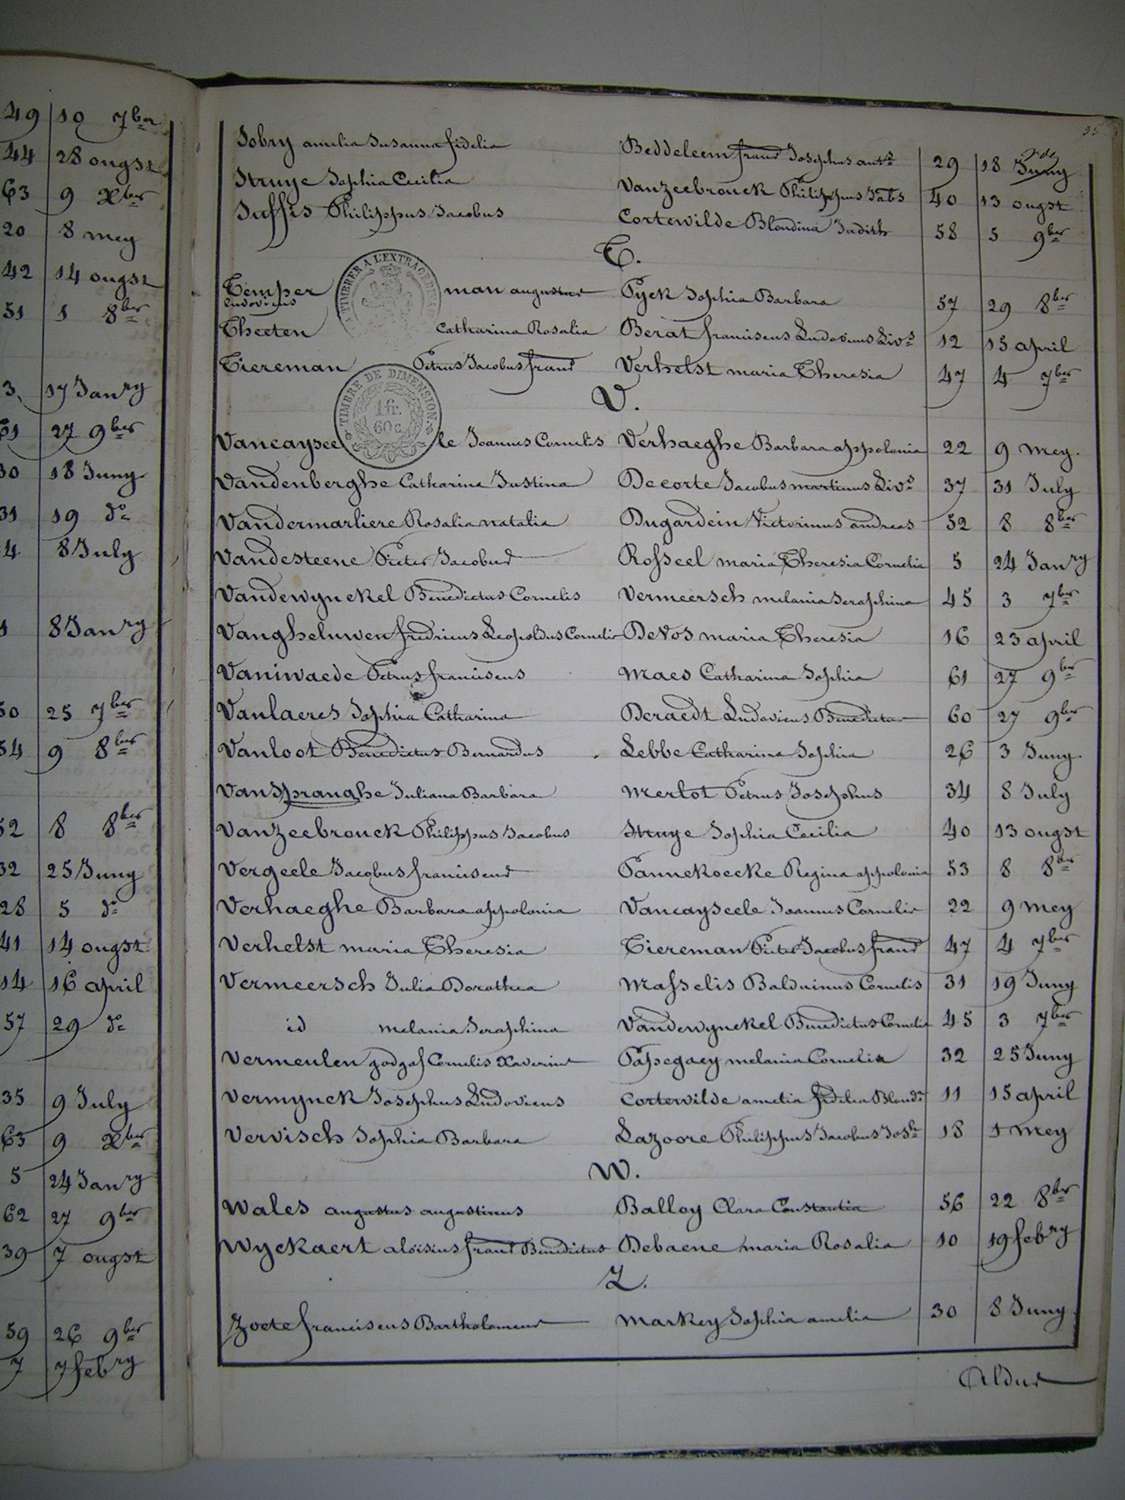 49 10 7ber
44 28 ougst
63 9 Xber
20 8 mey
42 14 ougst
51 1 8ber
3. 17 Janry
61 27 9ber
30 18 Juny
31 19 do
4 8 July
8 Janry
50 25 7ber
54 9 8ber
52 8 8ber
32 25 Juny
28 5 do
41 14 ougst
14 16 april
57 29 do
35 9 July
63 9 Xber
5 24 Janry
62 27 9ber
39 7 ougst
59 26 9ber
7 7 febry
35
Sobry amelia Susanna fidelia Beddeleem frans Josephus anto 29 18 Juny
Struye Sophia Cecilia Vanzeebrouck Philippus Jabs 40 13 ougst
Suffis Philippus Jacobus Cortewilde Blondina Judith 58 5 9ber
T.
Temperman augustus Pyck Sophia Barbara 57 29 8ber
Ludovicus
Theeten Catharina Rosalia Berat franciscus Ludovicus Livs 12 15 april
Tiereman Petrus Jacobus frans Verhelst maria Theresia 47 4 7ber
TIMBRER A L'EXTRAORD
TIMBRE DE DIMENSION
1 fr.
60 c.
V.
Vancayseele Joannes Cornelis Verhaeghe Barbara appolonia 22 9 mey.
Vandenberghe Catharina Justina Decorte Jacobus martinus Livs 37 31 July
Vandermarliere Rosalia natalia Dugardein Victorinus andreas 52 8 8ber
Vandesteene Pieter Jacobus Rosseel maria Theresia Cornelia 5 24 Janry
Vandewynckel Benedictus Cornelis Vermeersch melania Seraphina 45 3 7ber
Vangheluwen fredricus Leopoldus Cornelis Devos maria Theresia 16 23 april
Vaniwaede Petrus franciscus Maes Catharina Sophia 61 27 9ber
Vanlaeres Sophia Catharina Deraedt Ludovicus Benedictus 60 27 9ber
Vanloot Benedictus Bernardus Lebbe Catharina Sophia 26 3 Juny
VanSpranghe Juliana Barbara Merlot Petrus Josephus 34 8 July
Vanzeebrouck Philippus Jacobus Struye Sophia Cecilia 40 13 ougst
Vergeele Jacobus franciscus Pannekoecke Regina appolonia 53 8 8ber
Verhaeghe Barbara appolonia Vancayseele Joannes Cornelis 22 9 mey
Verhelst maria Theresia Tiereman Pieter Jacobus frans 47 4 7ber
Vermeersch Julia Dorothea Masselis Balduinus Cornelis 31 19 Juny
id melania Seraphina Vandewynckel Benedictus Cornelis 45 3 7ber
Vermeulen Cornelis Xaverius Passegaey melania Cornelia 32 25 Juny
Vermynck Josephus Ludovicus Cortewilde amelia fidelia Blonda 11 15 april
Vervisch Sophia Barbara Lazoore Philippus Jacobus Josh 18 1 mey
W.
Wales augustus augustinus Balloy Clara Constantia 56 22 8ber
Wyckaert aloisius frans Benedictus Debaene maria Rosalia 10 19 febry
Z.
Zoete franciscus Bartholomeus Markey Sophia amelia 30 8 Juny